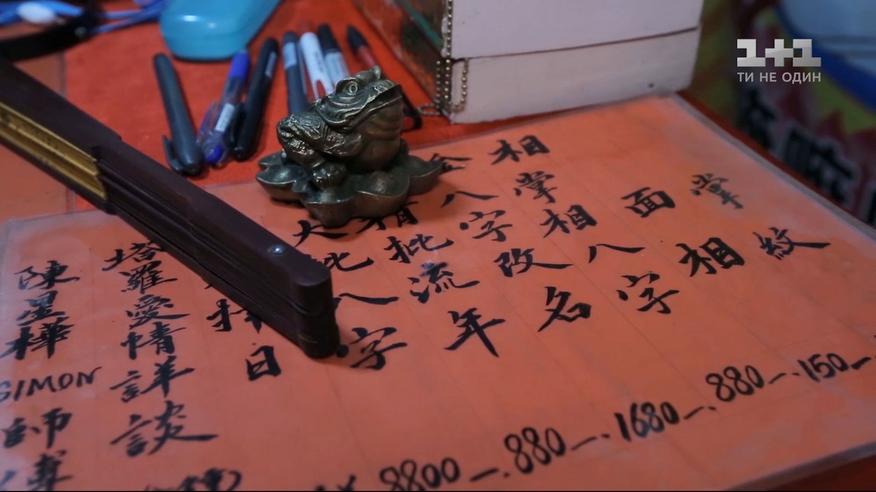 1+1
ТИ НЕ ОДИН
掌紋
150
面相
相掌相八字
880
八字改名
1680
精批流年
880
大批八字
8800
日
塔羅愛情詳談
陳星樺
SIMON
師傅